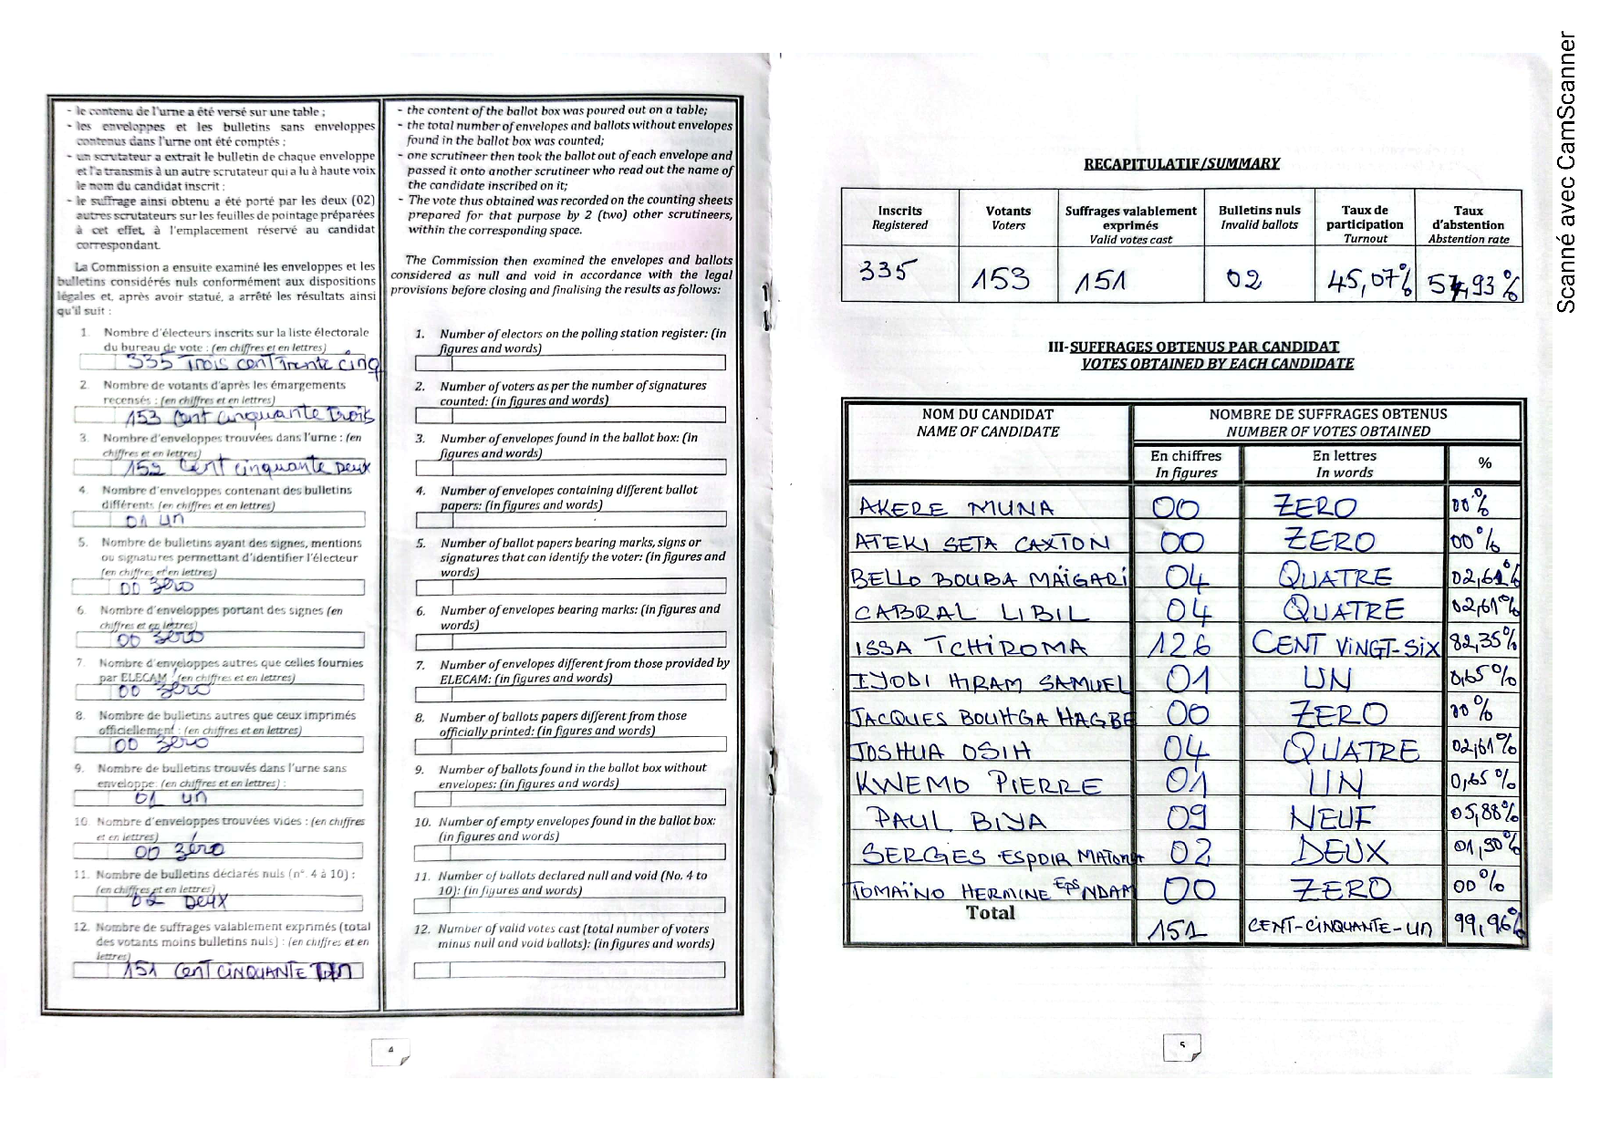 - le contenu de l'urne a été versé sur une table ;
- les enveloppes et les bulletins sans enveloppes
contenus dans l'urne ont été comptés ;
- un scrutateur a extrait le bulletin de chaque enveloppe
et l'a transmis à un autre scrutateur qui a lu à haute voix
le nom du candidat inscrit ;
- le suffrage ainsi obtenu a été porté par les deux (02)
autres scrutateurs sur les feuilles de pointage préparées
à cet effet, à l'emplacement réservé au candidat
correspondant.
La Commission a ensuite examiné les enveloppes et les
bulletins considérés nuls conformément aux dispositions
légales et, après avoir statué, a arrêté les résultats ainsi
qu'il suit :
1. Nombre d'électeurs inscrits sur la liste électorale
du bureau de vote : (en chiffres et en lettres)
335 Trois cent trente cinq
2. Nombre de votants d'après les émargements
recensés : (en chiffres et en lettres)
153 cent cinquante trois
3. Nombre d'enveloppes trouvées dans l'urne : (en
chiffres et en lettres)
152 cent cinquante Deux
4. Nombre d'enveloppes contenant des bulletins
différents (en chiffres et en lettres)
01 un
5. Nombre de bulletins ayant des signes, mentions
ou signatures permettant d'identifier l'électeur
(en chiffres et en lettres)
00 zéro
6. Nombre d'enveloppes portant des signes (en
chiffres et en lettres)
00 zéro
7. Nombre d'enveloppes autres que celles fournies
par ELECAM (en chiffres et en lettres)
00 zéro
8. Nombre de bulletins autres que ceux imprimés
officiellement : (en chiffres et en lettres)
00 zéro
9. Nombre de bulletins trouvés dans l'urne sans
enveloppe (en chiffres et en lettres) :
01 un
10. Nombre d'enveloppes trouvées vides : (en chiffres
et en lettres)
00 zéro
11. Nombre de bulletins déclarés nuls (n° 4 à 10) :
(en chiffres et en lettres)
02 Deux
12. Nombre de suffrages valablement exprimés (total
des votants moins bulletins nuls) : (en chiffres et en
lettres)
151 cent CINQUANTE UN
4
- the content of the ballot box was poured out on a table;
- the total number of envelopes and ballots without envelopes
found in the ballot box was counted;
- one scrutineer then took the ballot out of each envelope and
passed it onto another scrutineer who read out the name of
the candidate inscribed on it;
- The vote thus obtained was recorded on the counting sheets
prepared for that purpose by 2 (two) other scrutineers,
within the corresponding space.
The Commission then examined the envelopes and ballots
considered as null and void in accordance with the legal
provisions before closing and finalising the results as follows:
1. Number of electors on the polling station register: (in
figures and words)
2. Number of voters as per the number of signatures
counted: (in figures and words)
3. Number of envelopes found in the ballot box: (in
figures and words)
4. Number of envelopes containing different ballot
papers: (in figures and words)
5. Number of ballot papers bearing marks, signs or
signatures that can identify the voter: (in figures and
words)
6. Number of envelopes bearing marks: (in figures and
words)
7. Number of envelopes different from those provided by
ELECAM: (in figures and words)
8. Number of ballots papers different from those
officially printed: (in figures and words)
9. Number of ballots found in the ballot box without
envelopes: (in figures and words)
10. Number of empty envelopes found in the ballot box:
(in figures and words)
11. Number of ballots declared null and void (No. 4 to
10): (in figures and words)
12. Number of valid votes cast (total number of voters
minus null and void ballots): (in figures and words)
RECAPITULATIF/SUMMARY
Inscrits Registered
Votants Voters
Suffrages valablement exprimés Valid votes cast
Bulletins nuls Invalid ballots
Taux de participation Turnout
Taux d'abstention Abstention rate
335 153 151 02 45,07% 54,93%
III- SUFFRAGES OBTENUS PAR CANDIDAT
VOTES OBTAINED BY EACH CANDIDATE
NOM DU CANDIDAT NOMBRE DE SUFFRAGES OBTENUS
NAME OF CANDIDATE NUMBER OF VOTES OBTAINED
En chiffres En lettres %
In figures In words
AKERE MUNA 00 ZERO 00%
ATEKI SETA CAXTON 00 ZERO 00%
BELLO BOUBA MAÏGARI 04 QUATRE 02,61%
CABRAL LIBIL 04 QUATRE 02,61%
ISSA TCHIROMA 126 CENT VINGT-SIX 82,35%
IYODI HIRAM SAMUEL 01 UN 0,65%
JACQUES BOUHGA HAGBE 00 ZERO 00%
JOSHUA OSIH 04 QUATRE 02,61%
KWEMO PIERRE 01 UN 0,65%
PAUL BIYA 09 NEUF 05,88%
SERGES ESPOIR MATOMBA 02 DEUX 01,30%
TOMAÏNO HERMINE Eps NDAM 00 ZERO 00%
Total 151 CENT-CINQUANTE-UN 99,96%
5
Scanné avec CamScanner